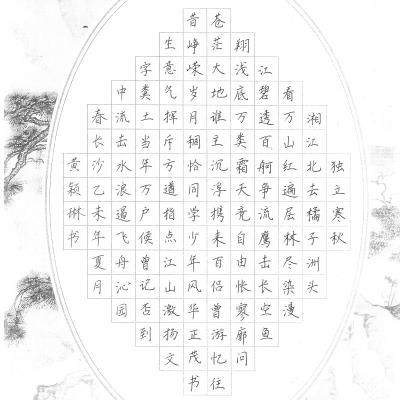 独立寒秋
湘江北去橘子洲头
看万山红遍层林尽染漫
江碧透百舸争流鹰击长空鱼
翔浅底万类霜天竞自由怅寥廓问
苍茫大地谁主沉浮携来百侣曾游忆往
昔峥嵘岁月稠恰同学少年风华正茂书
生意气挥斥方遒指点江山激扬文
字粪土当年万户侯曾记否到
中流击水浪遏飞舟沁园
春长沙乙未年夏月
黄颖琳书